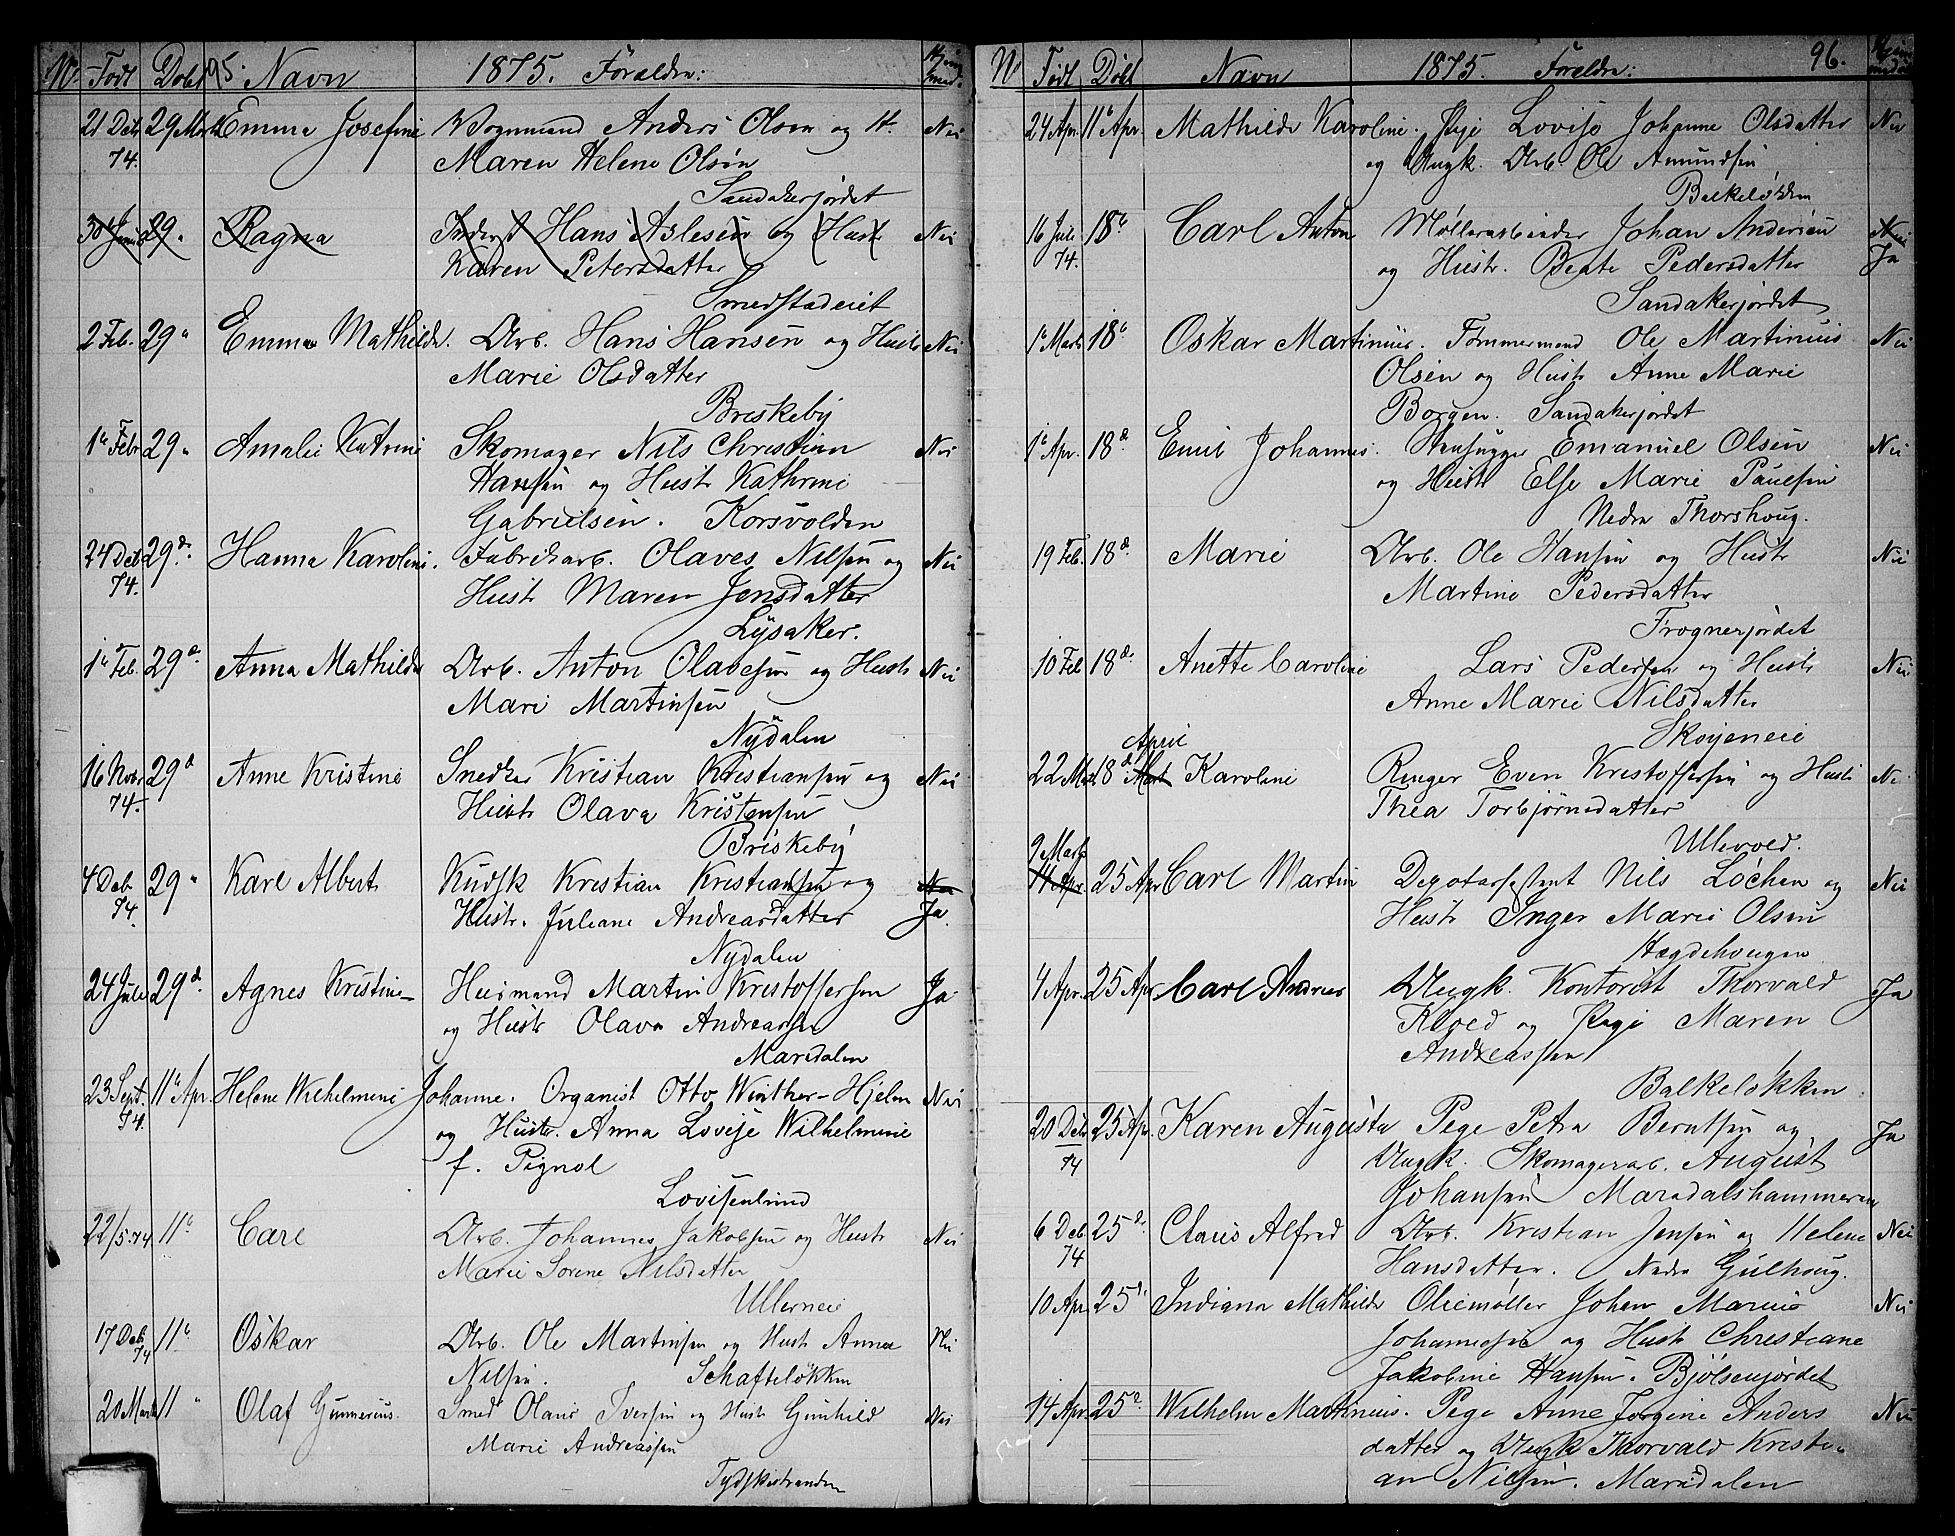 No Født Døbt 95. Navn 1875. Forældre: Hjem med.
21 Dec 29 Marts Emma Josefine Vognmand Anders Olsen og H. Nei
74. Maren Helene Olsen
Sandakerjordet
30 Januar 29. Ragna Inderst Hans Aslesen og Hust Nei
Karen Petersdatter
Smedstadeiet
2 Feb. 29 " Emma Mathilde. Arb. Hans Hansen og Hustr Nei
Marie Olsdatter
Briskeby
1 Febr 29 " Amalie Katrine Skomager Nils Christian Nei
Hansen og Hustr Kathrine
Gabrielsen. Korsvolden
24 Dec 29 d. Hanna Karoline. Fabrikarb. Olaves Nilsen og Nei
74. Hustr Maren Jensdatter
Lysaker.
1 Feb. 29 d. Anna Mathilde Arb. Anton Olavesen og Hustr Nei
Mari Martinsen
Nydalen
16 Novbr 29 d Anne Kristine Snedker Kristian Kristiansen og Nei
74. Hustr Olava Kristensen
Briskeby
4 Deb 29 " Karl Albert Kudsk Kristian Kristiansen og Nei
74. Hustr. Juliane Andreasdatter Ja.
Nydalen
24 Juli 29 d. Agnes Kristine Husmand Martin Kristoffersen Ja
og Hustr Olava Andreassen
Maridalen
23 Sept. 11 Apr. Helene Wilhelmine Johanne. Organist Otto Winther-Hjelm Nei
74. og Hustr. Anna Lovise Wilhelmine
f. Pignol
Lovisenlund
22/5.74 11 Carl Arb. Johannes Jakobsen og Hustr Nei
Marie Sorene Nilsdatter
Ullerneie
17 Deb 11 Oskar Arb. Ole Martinsen og Hust Anna Nei
74 Nilsen. Schafteløkken
20 Marts 11 " Olaf Gunnerius. Smed Olaus Iversen og Hustr Gunhild Nei
Marie Andreassen
Tydskestranden
No Født Døbt Navn 1875. Forældre: 96. Hjem med
24 Apr. 11 Apr. Mathilde Karoline. Pige Lovise Johanne Olsdatter Nei
og Ungk. Arb. Ole Amundsen
Balkeløkken
16 Juli 18 Carl Anton Møllerarbeider Johan Andersen Nei
74. og Hustr. Beate Pedersdatter Ja
Sandakerjordet
1 Marts 18 Oskar Martinius. Tømmermand Ole Martinius Nei
Olsen og Hustr Anne Marie
Borgen. Sandakerjordet
1 Apr. 18 d. Emil Johannes. Stenhugger Emanuel Olsen Nei
og Hustr Else Marie Paulsen
Nedre Thorshoug.
19 Feb. 18 d. Marie Arb. Ole Hansen og Hustr Nei
Martine Pedersdatter
Frognerjordet
10 Feb 18 d. Anette Caroline Lars Pedersen og Hustr Nei
Anne Marie Nilsdatter
Skøyeneie
April
22 Mar 18 d Mart Karoline Ringer Even Kristoffersen og Hustr Nei
Thea Torbjørnsdatter
Ullevold.
9 Marts
14 Apr. 25 Apr Carl Martin Depotassistent Nils Lochen og Nei
Hustr Inger Marie Olsen
Hægdehougen
4 Apr. 25 Apr Carl Andreas Ungk. Kontorist Thorvald Ja
Kloed og Pige Maren
Andreassen
Balkeløkken
20 Deb 25 Ap. Karen Augusta Pege Petra Berntsen og Ja
74 Ungk. Skomagerarb. August
Johansen Maradalshammeren
6 Deb 25 d. Claus Alfred Arb. Kristian Jensen og Helene Nei
74 Hansdatter. Nedre Gulhoug.
10 Apr. 25 d. Indiana Mathilde Oliemøller Johan Marius Nei
Johannesen og Hustr Christiane
Jakobine Hansen. Bjølsenjordet
14 Apr. 25 d. Wilhelm Martinius. Pege Anne Jørgine Anders Nei
datter og Ungk Thorvald Kristi-
an Nilsen. Maradalen